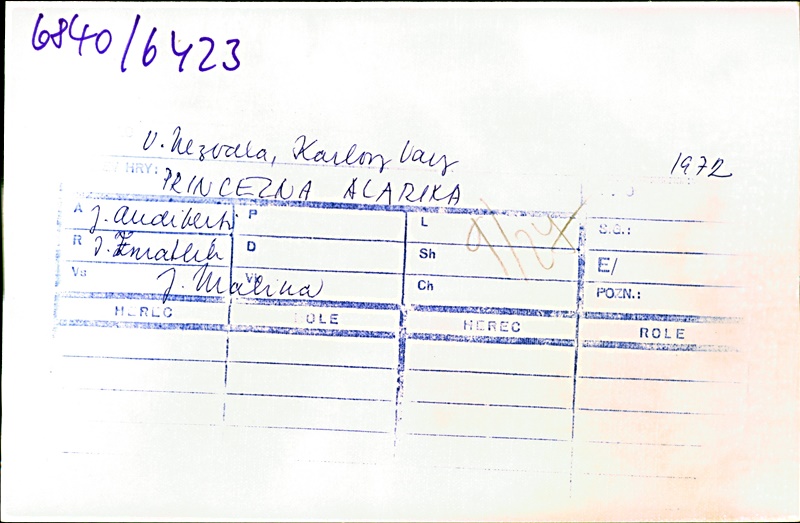 6840/6423
V. Nezvala, Karlovy Vary 1972
HRY: PRINCEZNA ALARIKA
A J. Audiberti P L S.G.:
R I. Zmatlík D Sh E/
Vs J. Malina Ch POZN.:
9/24
HEREC ROLE HEREC ROLE